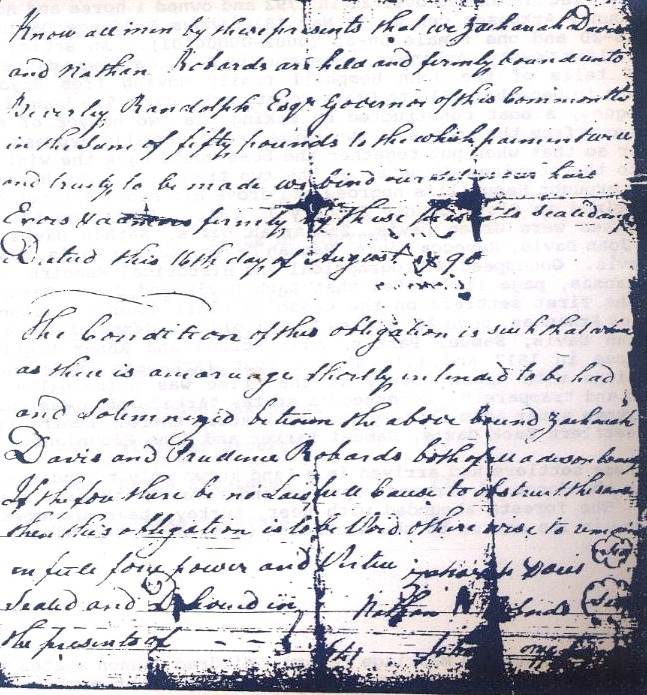 Know all men by these presents that we Zachariah Davis
and Nathan Robards are held and firmly bound unto
Beverly Randolph Esqr Governor of this Commonwth
in the sum of fifty pounds to the which payment well
and truly to be made we bind ourselves our heirs
Exors firmly by these presents sealed and
Dated this 16th day of August 90
The Condition of this obligation is such that where
as there is a marriage shortly intended to be had
and Solemnized between the above bound Zachariah
Davis and Prudence Robards both of
If therefore there be no Lawfull Cause to obstruct the same
then this obligation is to be Void otherwise to remain
in full force power and Virtue Zachariah Davis Seal
Sealed and Nathan Robards Seal
the presents of